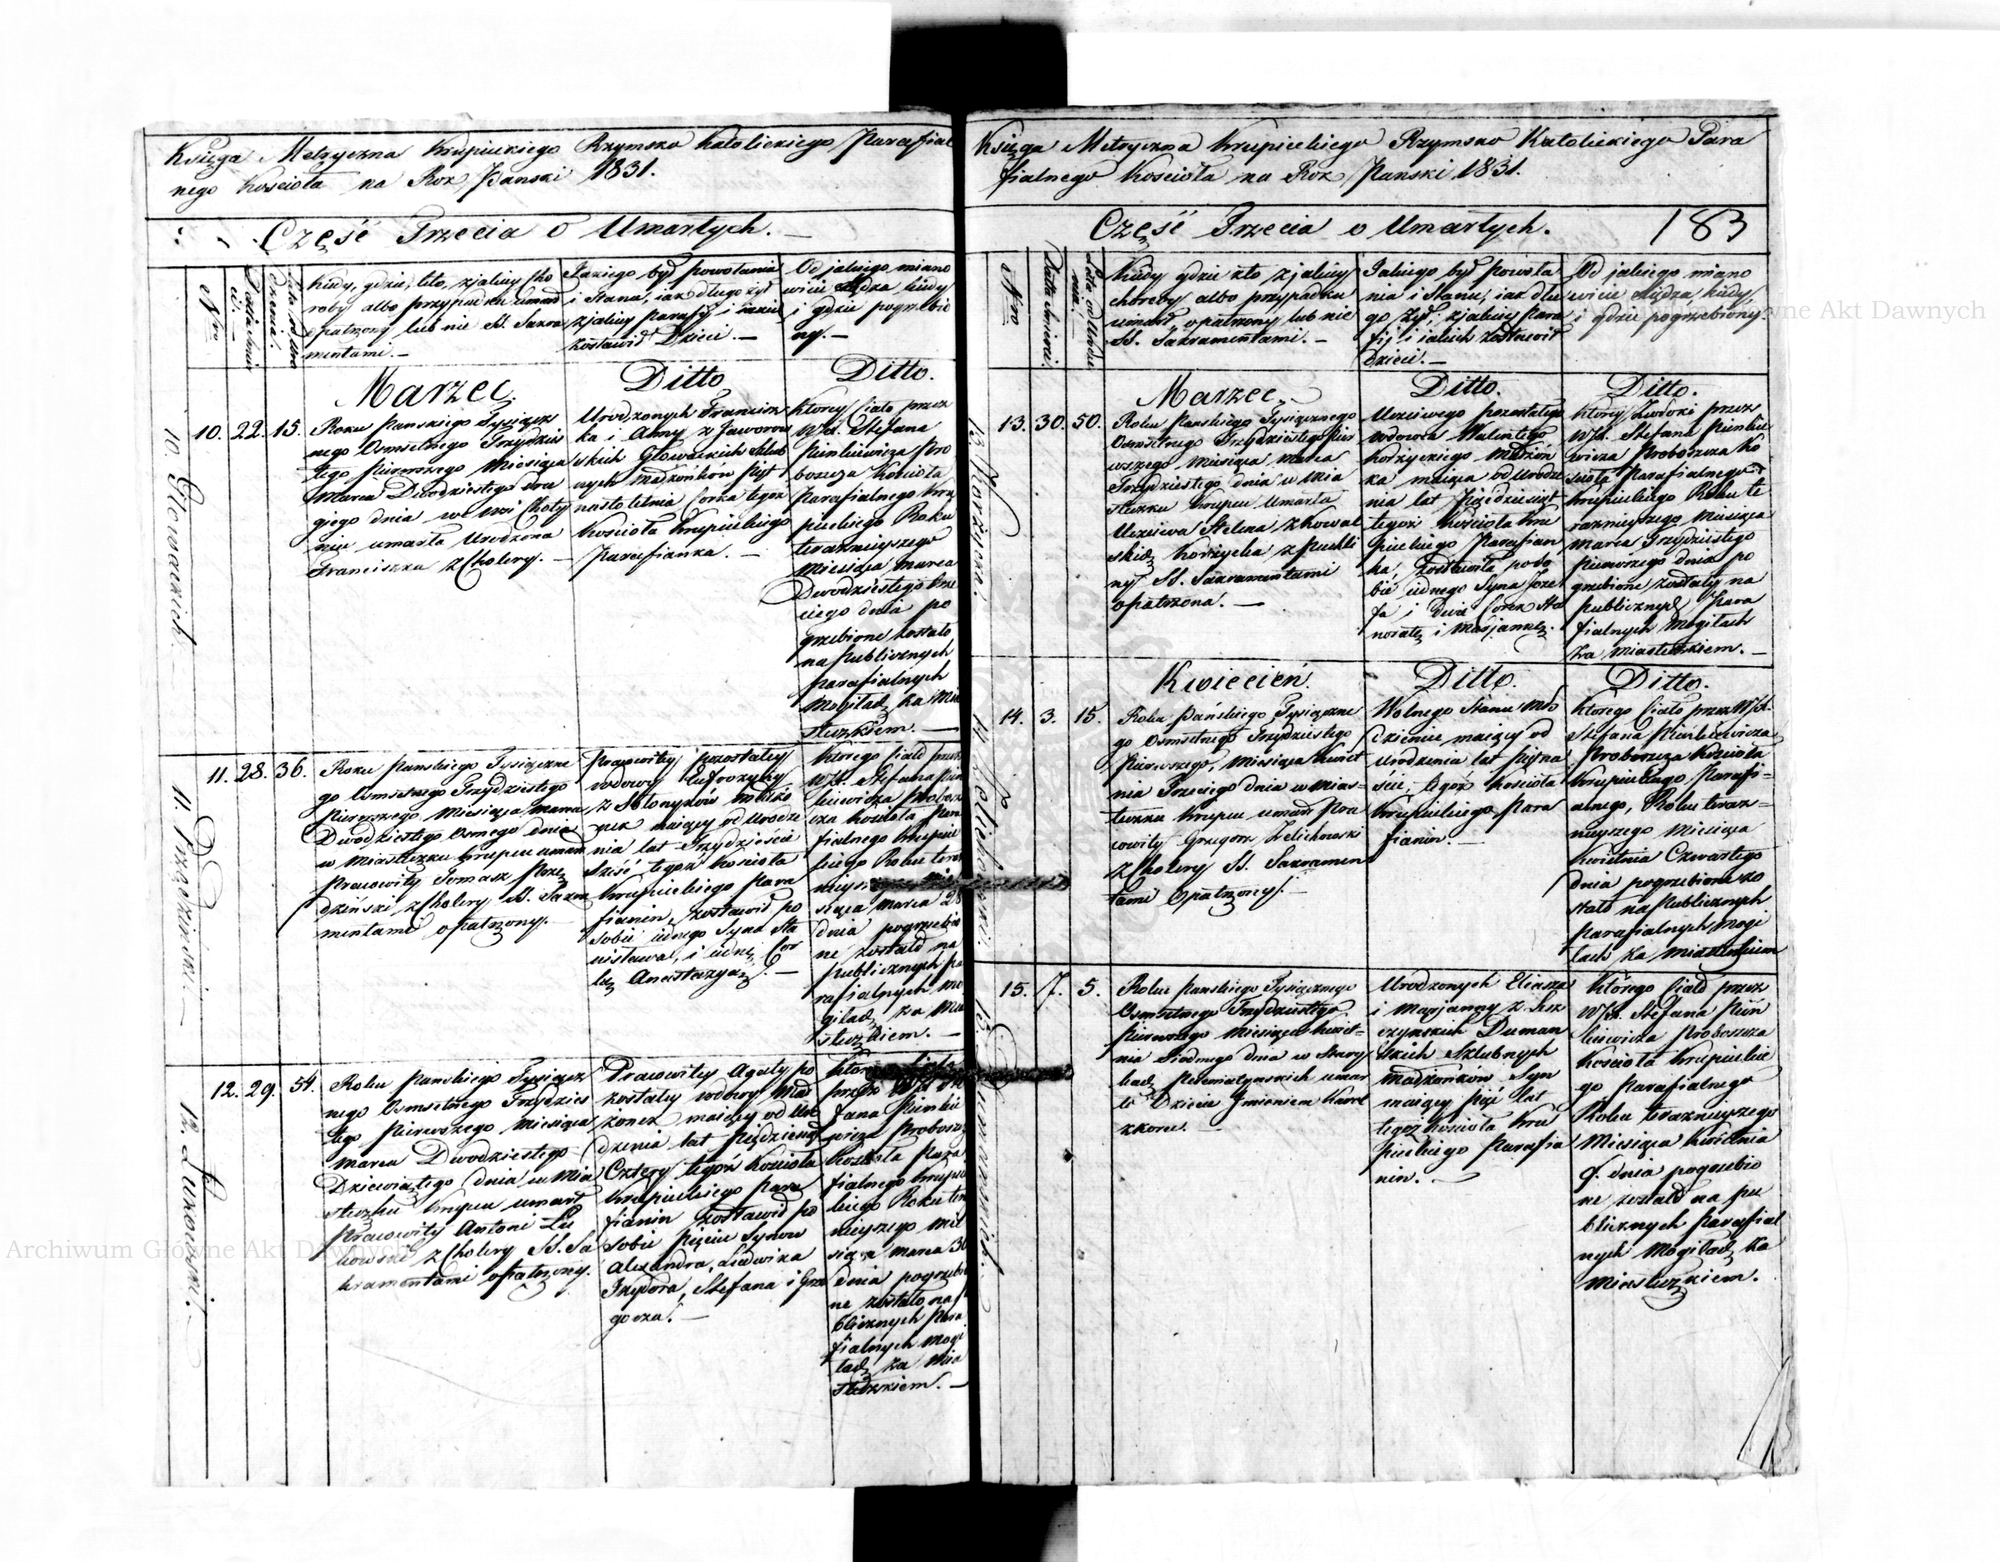 Księga Metryczna Krupickiego Rzymsko Katolickiego Parafial
nego Kościoła na Rok Pański 1831.
Część Trzecia o Umarłych.
Nro
Kiedy, gdzie, kto, z jakiey cho
roby albo przypadku umarł
opatrzony lub nie SS. Sakra
mentami.
Jakiego był powołania
i Stanu, iak długo żył
z jakiey parafij i iakie
zostawił Dzieci.
Od jakiego miano
wicie Xiędza kiedy
i gdzie pogrzebio
ny.
10. Głowackich.
10. 22. 15.
Marzec.
Roku Panskiego Tysiącz
nego Osmsetnego Trzydzies
tego pierwszego Miesiąca
Marca Dwódziestego dru
giego dnia we wsi
umarła Urodzona
Franciszka z Cholery.
Ditto
Urodzonych Francisz
ka i Anny z Jaworow
skich Głowackich Slub
nych Małżonków pięt
nastoletnia Corka tegoż
Kościoła Krupickiego
Parafianka.
Ditto.
Ktorey Ciało przez
WJX. Stefana
Pinkiewicza Pro
boszcza Kościoła
Parafialnego Kru
pickiego Roku
teraznieyszego
Miesiąca Marca
Dwódziestego trze
ciego dnia po
grzebione zostało
na publicznych
parafialnych
Mogiłach za Mia
steczkiem.
11.
11. 28. 36.
Roku Panskiego Tysiączne
go Osmsetnego Trzydziestego
pierwszego Miesiąca Marca
Dwódziestego Osmego dnia
w Miasteczku Krupcu umarł
Pracowity Tomasz
z Cholery SS. Sakra
mentami opatrzony.
Pracowitey pozostałey
wdowy Eufrozyny
z małżo
nek maiący od Urodze
nia lat Trzydzieści
Sześć tegoż Kościoła
Krupickiego Para
fianin, zostawił po
sobie iednego Syna Sta
nisława, i iednę Cor
kę Anastazyą.
Ktorego Ciało przez
WJX. Stefana Pin
kiewicza Probosz
cza Kościoła Para
fialnego Krupic
kiego Roku teraz
nieysz
siąca Marca 28
dnia pogrzebio
ne zostało na
publicznych pa
rafialnych mo
giłach za Mia
steczkiem.
12. Łukowski.
12. 29. 54.
Roku Panskiego Tysiącz
nego Osmsetnego Trzydzies
tego pierwszego Miesiąca
Marca Dwódziestego
Dziewiątego dnia w Mia
steczku Krupcu umarł
Pracowity Antoni Łu
kowski z Cholery SS. Sa
kramentami opatrzony.
Pracowitey Agaty po
zostałey wdowy Mał
żonek maiący od Uro
dzenia lat Pięćdziesiąt
Cztery tegoż Kościoła
Krupickiego Para
fianin zostawił po
sobie pięciu Synow
Alexandra, Ludwika
Izydora, Stefana i Grze
gorza.
przez WJX Ste
fana Pinkie
wicza Probosz
Kościoła Para
fialnego Krupic
kiego Roku teraz
nieyszego Mie
siąca Marca 30
dnia pogrzebio
ne zostało na
blicznych Para
fialnych Mogi
łach za Mia
steczkiem.
Księga Metryczna Krupickiego Rzymsko Katolickiego Para
fialnego Kościoła na Rok Pański 1831.
Część Trzecia o Umarłych. 183
Nro
Data śmierci.
Kiedy gdzie kto z jakiey
choroby albo przypadku
umarł, opatrzony lub nie
SS. Sakramentami.
Jakiego był powoła
nia i Stanu, iak dłu
go żył, z jakiey para
fij i iakich zostawił
Dzieci.
Od jakiego miano
wicie Xiędza, kiedy,
i gdzie pogrzebiony.
13. Korżycka.
13. 30. 50.
Marzec.
Roku Panskiego Tysiącznego
Osmsetnego Trzydziestego pier
wszego Miesiąca Marca
Trzydziestego dnia w Mia
steczku Krupcu Umarła
Uczciwa Helena z Kowal
skich Korzycka z Puchli
ny SS. Sakramentami
opatrzona.
Ditto.
Uczciwego pozostałego
wdowca Walentego
Korzyckiego małżon
ka maiąca od Urodze
nia lat Pięćdziesiąt
tegoż Kościoła Kru
pickiego Parafian
ka, Zostawiła po so
bie iednego Syna Joze
fa i Dwie Corek Ho
noratę i Marjannę.
Ditto.
Ktorey Zwłoki przez
WJX. Stefana Pinkie
wicza Proboszcza Ko
ścioła Parafialnego
Krupickiego Roku te
raznieyszego Miesiąca
Marca Trzydziestego
pierwszego dnia po
grzebione zostały na
publicznych Para
fialnych Mogiłach
za Miasteczkiem.
14. Zelichowski.
14. 3. 15.
Kwiecień.
Roku Pańskiego Tysiączne
go Osmsetnego Trzydziestego
pierwszego, Miesiąca Kwiet
nia Trzeciego dnia w Mias
teczku Krupcu umarł Pra
cowity Grzegorz Zelichowski
z Cholery SS. Sakramen
tami Opatrzony.
Ditto.
Wolnego Stanu Mło
dzieniec maiący od
urodzenia lat Piętna
ście, tegoż Kościoła
Krupickiego Para
fianin.
Ditto.
Ktorego Ciało przez WJX.
Stefana Pinkiewicza
Proboszcza Kościoła
Krupickiego Parafi-
alnego, Roku teraz-
nieyszego Miesiąca
Kwietnia Czwartego
dnia pogrzebione zo
stało na publicznych
Parafialnych Mogi
łach za Miasteczkiem
15.
15. 7. 5.
Roku Panskiego Tysiącznego
Osmsetnego Trzydziestego
pierwszego Miesiąca Kwiet-
nia Siodmego dnia w
umar
ło Dziecie Jmieniem
Urodzonych Eliasza
i Marjanny z
Duman
skich Szlubnych
Małżonków Syn
maiący pięć lat
tegoż Kościoła Kru
pickiego Parafia
nin.
Ktorego Ciało przez
WJX. Stefana Pin
kiewicza Proboszcza
Kościoła Krupickie
go parafialnego
Roku teraznieyszego
Miesiąca Kwietnia
9. dnia pogrzebio
ne zostało na pu
blicznych parafial
nych Mogiłach za
Miasteczkiem.
Archiwum Główne Akt Dawnych